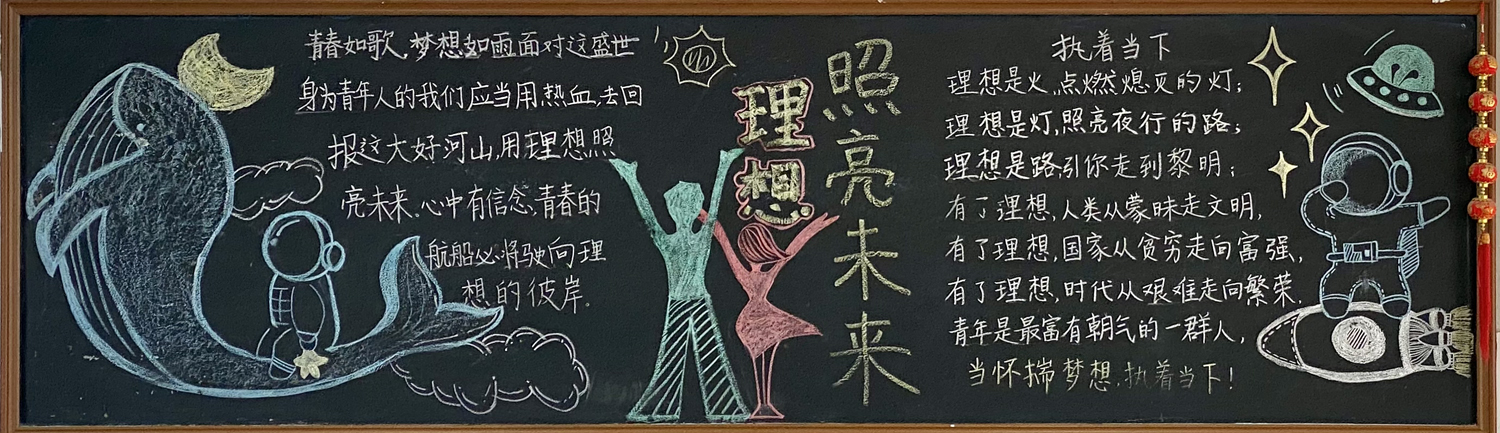 青春如歌,梦想如雨面对这盛世
身为青年人的我们应当用热血,去回
报这大好河山,用理想照
亮未来.心中有信念,青春的
航船必将驶向理
想的彼岸.
理想
照亮未来
执着当下
理想是火,点燃熄灭的灯;
理想是灯,照亮夜行的路;
理想是路,引你走到黎明;
有了理想,人类从蒙昧走文明,
有了理想,国家从贫穷走向富强,
有了理想,时代从艰难走向繁荣.
青年是最富有朝气的一群人,
当怀揣梦想,执着当下!